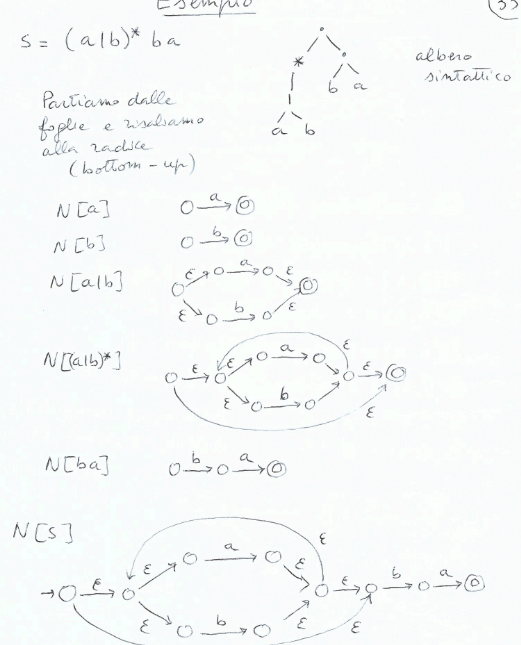 Esempio
33
s = (a|b)* ba
albero
sintattico
*
b a
a b
Partiamo dalle
foglie e risaliamo
alla radice
(bottom-up)
N[a] a
N[b] b
N[a|b] ε a ε
ε b ε
N[(a|b)*] ε ε a ε ε
ε b ε
N[ba] b a
N[s] ε
ε ε a ε ε b a
ε b ε ε